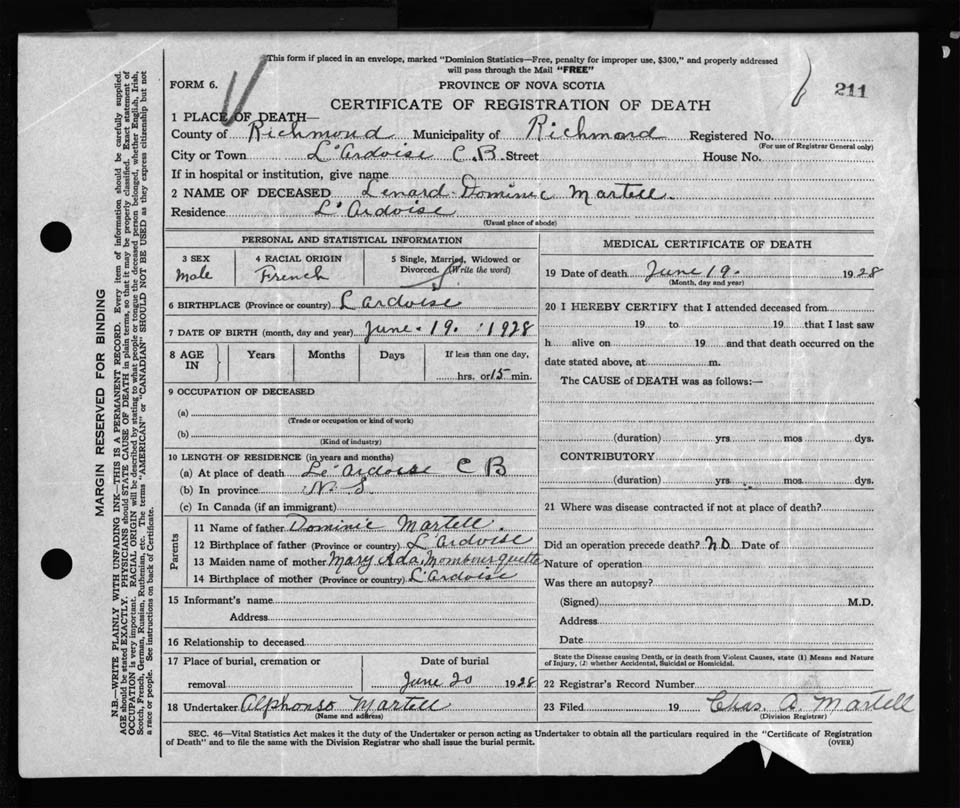 This form if placed in an envelope, marked "Dominion Statistics—Free, penalty for improper use, $300," and properly addressed
will pass through the Mail "FREE"
FORM 6.
PROVINCE OF NOVA SCOTIA
211
CERTIFICATE OF REGISTRATION OF DEATH
1 PLACE OF DEATH—
County of Richmond Municipality of Richmond Registered No.
(For use of Registrar General only)
City or Town L'Ardoise C.B. Street House No.
If in hospital or institution, give name
2 NAME OF DECEASED Lenard Dominic Martell.
Residence L'Ardoise
(Usual place of abode)
PERSONAL AND STATISTICAL INFORMATION
3 SEX
Male
4 RACIAL ORIGIN
French
5 Single, Married, Widowed or
Divorced. (Write the word)
S
6 BIRTHPLACE (Province or country) L'Ardoise
7 DATE OF BIRTH (month, day and year) June. 19. 1928
8 AGE IN
Years
Months
Days
If less than one day,
hrs. or 15 min.
9 OCCUPATION OF DECEASED
(a)
(Trade or occupation or kind of work)
(b)
(Kind of industry)
10 LENGTH OF RESIDENCE (in years and months)
(a) At place of death Le'Ardoise C B
(b) In province N.S.
(c) In Canada (if an immigrant)
Parents
11 Name of father Dominic Martell.
12 Birthplace of father (Province or country) L'Ardoise
13 Maiden name of mother Mary Ada Mombourquette
14 Birthplace of mother (Province or country) L'Ardoise
15 Informant's name
Address
16 Relationship to deceased
17 Place of burial, cremation or
removal
Date of burial
June 20 1928
18 Undertaker Alphonso Martell
(Name and address)
MEDICAL CERTIFICATE OF DEATH
19 Date of death June 19. 1928
(Month, day and year)
20 I HEREBY CERTIFY that I attended deceased from
19 to 19 that I last saw
h alive on 19 and that death occurred on the
date stated above, at m.
The CAUSE of DEATH was as follows:—
(duration) yrs. mos. dys.
CONTRIBUTORY
(duration) yrs. mos. dys.
21 Where was disease contracted if not at place of death?
Did an operation precede death? No Date of
Nature of operation
Was there an autopsy?
(Signed) M.D.
Address
Date
State the Disease causing Death, or in death from Violent Causes, state (1) Means and Nature
of Injury, (2) whether Accidental, Suicidal or Homicidal.
22 Registrar's Record Number
23 Filed 19 Chas. A. Martell
(Division Registrar)
SEC. 46—Vital Statistics Act makes it the duty of the Undertaker or person acting as Undertaker to obtain all the particulars required in the "Certificate of Registration
of Death" and to file the same with the Division Registrar who shall issue the burial permit.
(OVER)
MARGIN RESERVED FOR BINDING
N.B.—WRITE PLAINLY WITH UNFADING INK—THIS IS A PERMANENT RECORD. Every item of information should be carefully supplied.
AGE should be stated EXACTLY. PHYSICIANS should STATE CAUSE OF DEATH in plain terms, so that it may be properly classified. Exact statement of
OCCUPATION is very important. RACIAL ORIGIN will be described by stating to what people or tongue the deceased person belonged, whether English, Irish,
Scotch, French, German, Russian, Ruthenian, etc. The terms "AMERICAN" or "CANADIAN" SHOULD NOT BE USED as they express citizenship but not
a race or people. See instructions on back of Certificate.